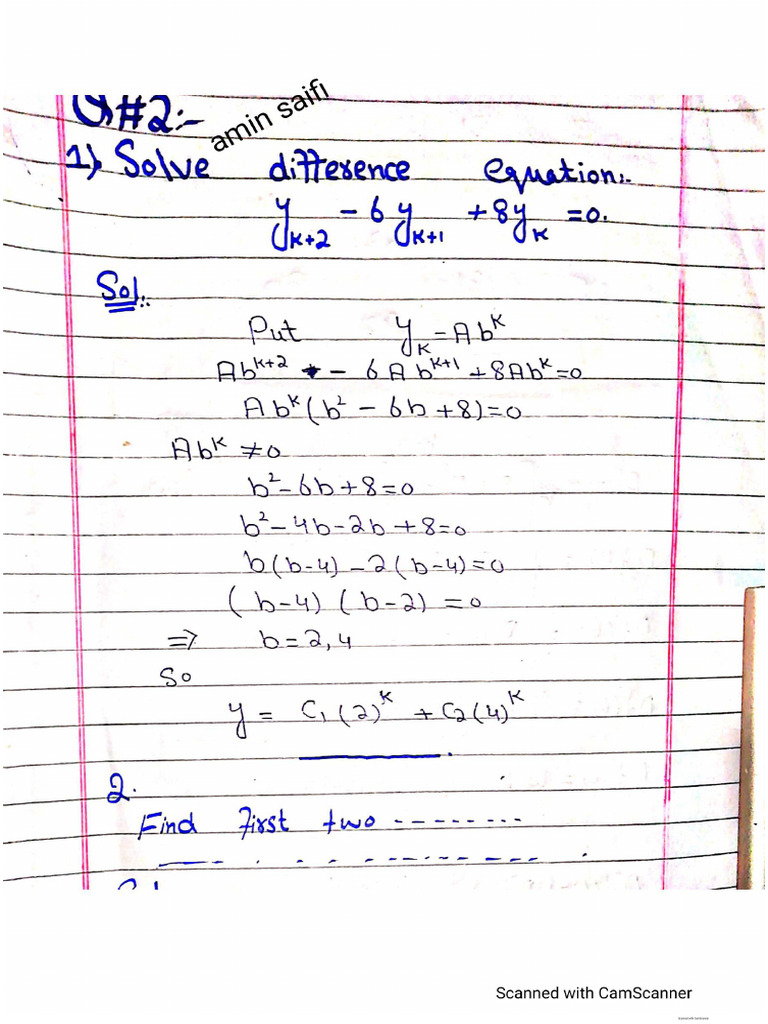 Q#2:-
amin saifi
1) Solve difference equation:.
y_{k+2} - 6 y_{k+1} + 8y_k = 0.
Sol:.
Put y_k = Ab^k
Ab^{k+2} - 6Ab^{k+1} + 8Ab^k = 0
Ab^k (b² - 6b + 8) = 0
Ab^k ≠ 0
b² - 6b + 8 = 0
b² - 4b - 2b + 8 = 0
b(b-4) - 2(b-4) = 0
(b-4) (b-2) = 0
⇒ b = 2, 4
So
y = C₁(2)^k + C₂(4)^k
2.
Find First two --------
Scanned with CamScanner